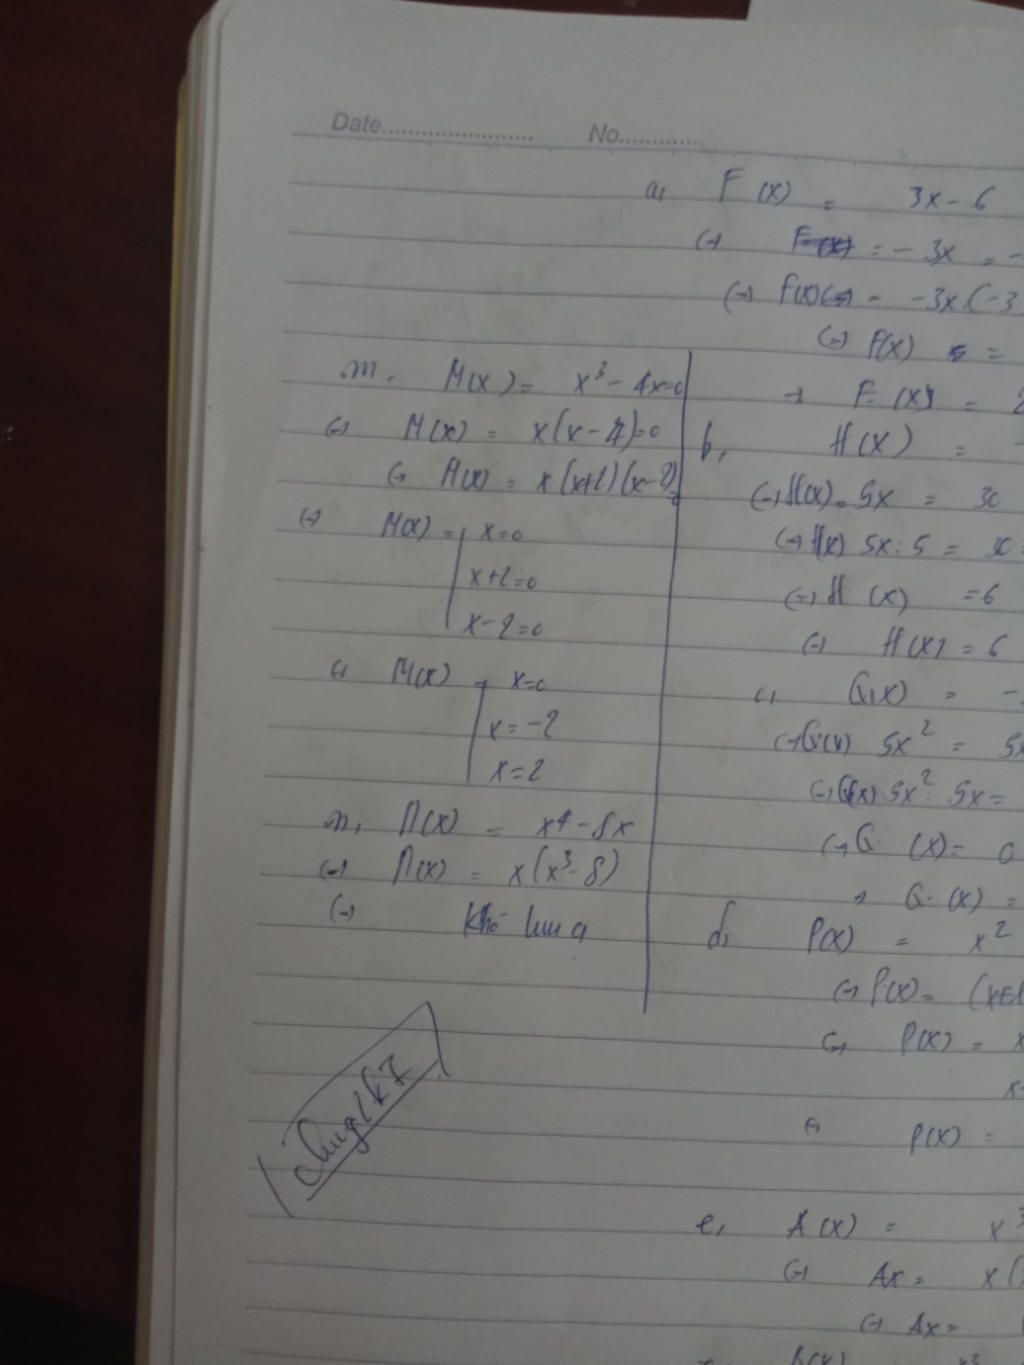 Date.................... No............
a, F(x) = 3x - 6
(-) = - 3x = -
(-) = -3x.(-3
(-) F(x) =
→ F(x) = 2
m. M(x) = x³ - 4x=0
(-) M(x) = x(x-4)=0
(-) M(x) = x(x+2)(x-2)=0
(-) M(x) = x=0
x+2=0
x-2=0
(-) M(x) = x=0
x=-2
x=2
n, N(x) = x⁴-8x
(-) N(x) = x(x³-8)
(-) Khó lum q
b, H(x) = -
(-) H(x) = 5x = 30
(-) H(x) 5x:5 = 30:
(-) H (x) =6
(-) H(x) = 6
c, G(x) = -
(-) G(x) 5x² = 5x
(-) G(x) 5x²: 5x=
(-) G (x)= 0
→ G. (x) =
d, P(x) = x²
(-) P(x)= (x+1
(-) P(x) = x
x-
(-) P(x) =
e, A(x) = x³
(-) Ax = x(
(-) Ax =